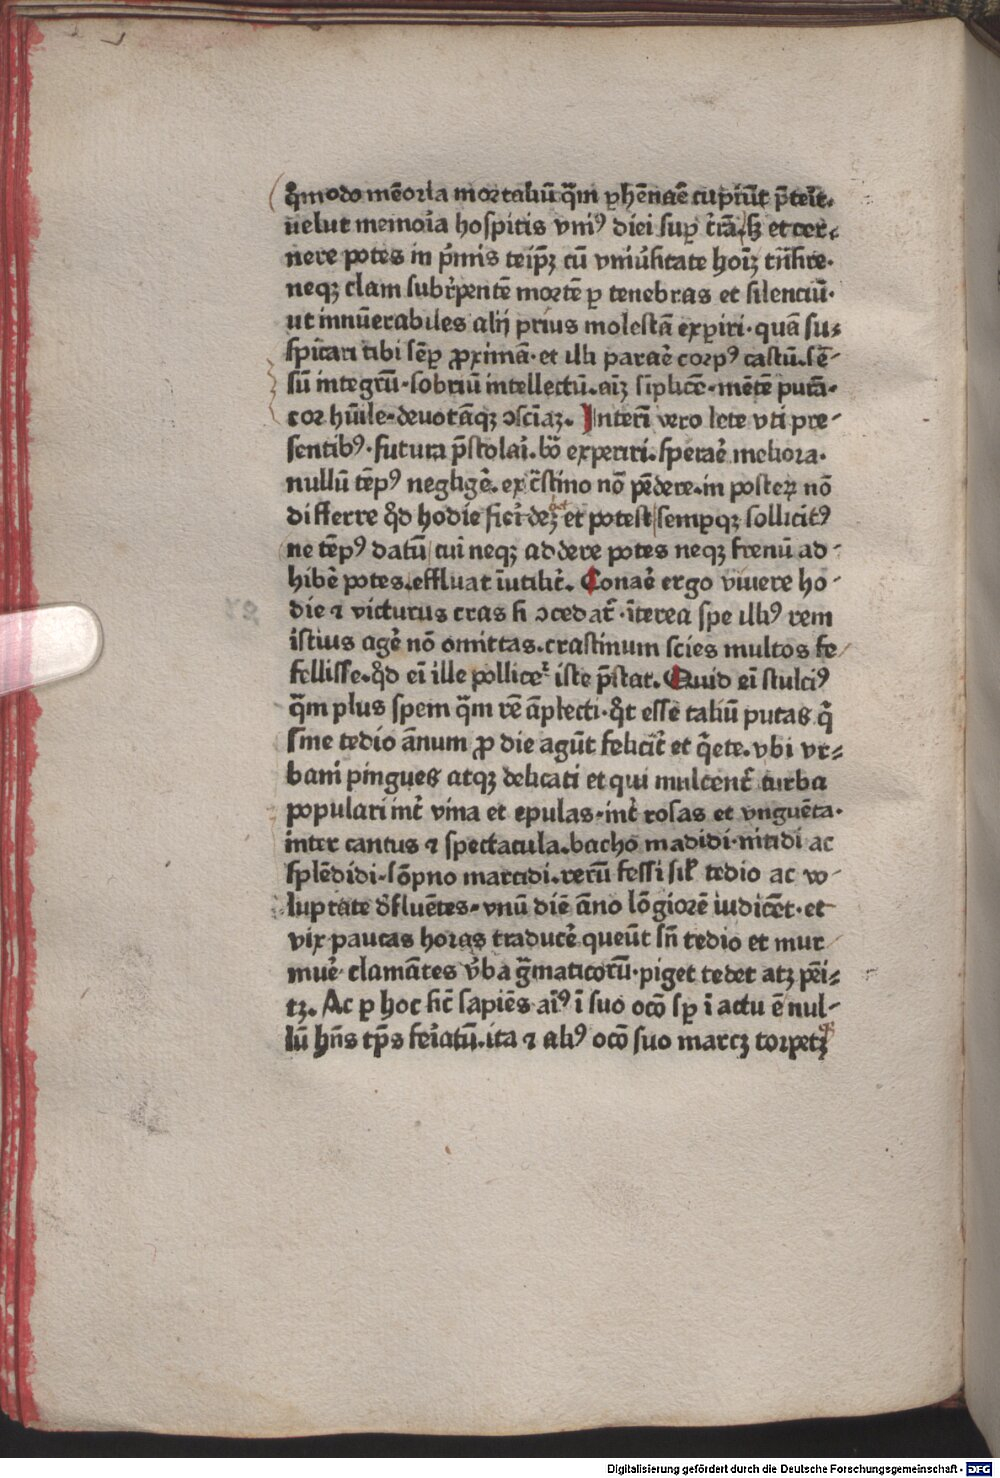 q̊modo mēoria mortaliū q̄m ꝑhēnāē cupiūt p̄teit.
uelut memoīa hospitis vniꝰ diei suꝑ t̄rā. sꝫ et cer-
nere potes in p̄mis teip̄ꝫ cū vniūsitate hoīꝫ trāsire.
neqꝫ clam subr̄pentē mortē ꝑ tenebras et silenciū.
ut innūerabiles alij prius molestā exꝑiri. quā su-
spitari tibi sēꝑ ꝓximā. et illi paraē corpꝰ castū. sē-
sū integrū. sobriū intellectū. aīꝫ siplicē. mētē purā.
cor hūile. devotāqꝫ ɔsciāꝫ. Interī vero lete vti pre-
sentibꝰ. futura p̄stolai. bō experiri. speraē meliora.
nullū tēpꝰ negligē. ex c̄stino nō pēdere. in posteꝝ nō
differre q̊d hodie fieī deꝫ et potest semꝑqꝫ sollicitꝰ
ne tēpꝰ datū cui neqꝫ addere potes neqꝫ frenū ad-
hibē potes. effluat īutilit̄. Conaē ergo vivere ho-
die ⁊ victurus cras si ɔcedat̄. īterea spe illiꝰ rem
istius agē nō omittas. crastinum scies multos fe
fellisse. q̊d eī ille pollicet̄ iste p̄stat. Quid eī stulciꝰ
q̄m plus spem q̄m rē āplecti. q̊t esse taliū putas q̄
sine tedio ānum ꝓ die agūt felicit̄ et q̄ete. vbi vr-
bani pingues atqꝫ delicati et qui mulcent̄ turba
populari int̄ vina et epulas. int̄ rosas et vnguēta.
inter cantus ⁊ spectacula. bacho madidi. nitidi ac
splēdidi. sōpno marcidi. rerū fessi sil̄ tedio ac vo-
luptate d̄fluētes. vnū diē āno lōgiorē iudicēt. et
vix paucas horas traducē queūt sn̄ tedio et mur
muē clamātes v̄ba g̃maticorū. piget tedet atꝫ pēi-
tꝫ. Ac ꝑ hoc sic̄ sapiēs aīꝰ ī suo ocō sꝑ ī actu ē nul-
lū hn̄s tp̄s feīatū. ita ⁊ aliꝰ ocō suo marcꝫ torpetqꝫ
Digitalisierung gefördert durch die Deutsche Forschungsgemeinschaft - DFG